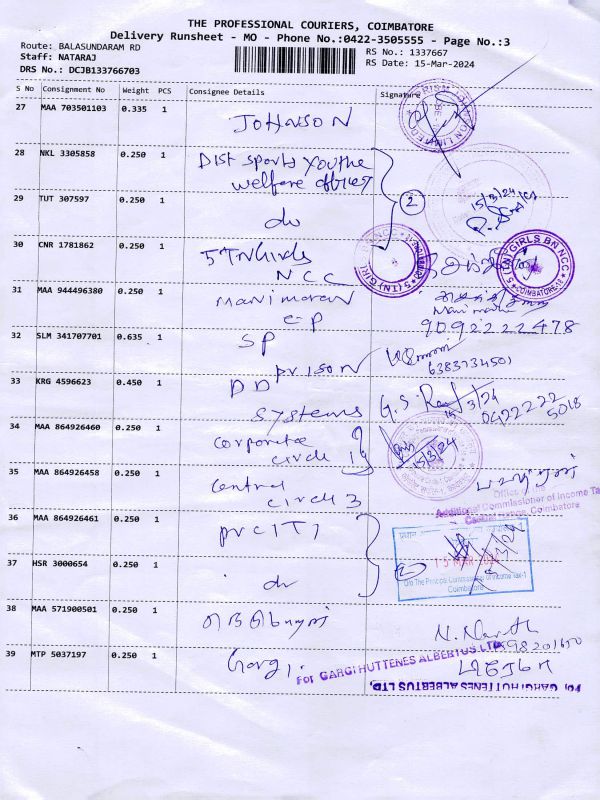 THE PROFESSIONAL COURIERS, COIMBATORE
Delivery Runsheet - MO - Phone No.:0422-3505555 - Page No.:3
Route: BALASUNDARAM RD
RS No.: 1337667
Staff: NATARAJ
RS Date: 15-Mar-2024
DRS No.: DCJB133766703
S No Consignment No Weight PCS Consignee Details Signature
27 MAA 703501103 0.335 1
Johnson
28 NKL 3305858 0.250 1
Dist sports youthe
welfare officer
29 TUT 307597 0.250 1
do
2
15/3/24
30 CNR 1781862 0.250 1
5 TN Girls
NCC
5 (TN) GIRLS BN NCC
COIMBATORE-18
31 MAA 944496380 0.250 1
manimaran
C-P
9092222478
32 SLM 341707701 0.635 1
SP
prison
6383734501
33 KRG 4596623 0.450 1
DD
Systems
G.S. 
15/3/24
0422222
5018
34 MAA 864926460 0.250 1
Corporate
circle 1
15/3/24
35 MAA 864926458 0.250 1
Central
circle 3
Office of the
Additional Commissioner of Income Tax
Central Range, Coimbatore
36 MAA 864926461 0.250 1
prCIT 1
15 MAR 2024
37 HSR 3000654 0.250 1
do
O/o The Principal Commissioner of Income Tax-1
Coimbatore
38 MAA 571900501 0.250 1
39 MTP 5037197 0.250 1
Gargi.
For GARGI HUTTENES ALBERTUS LTD
For, GARGI HUTTENES ALBERTUS LTD,